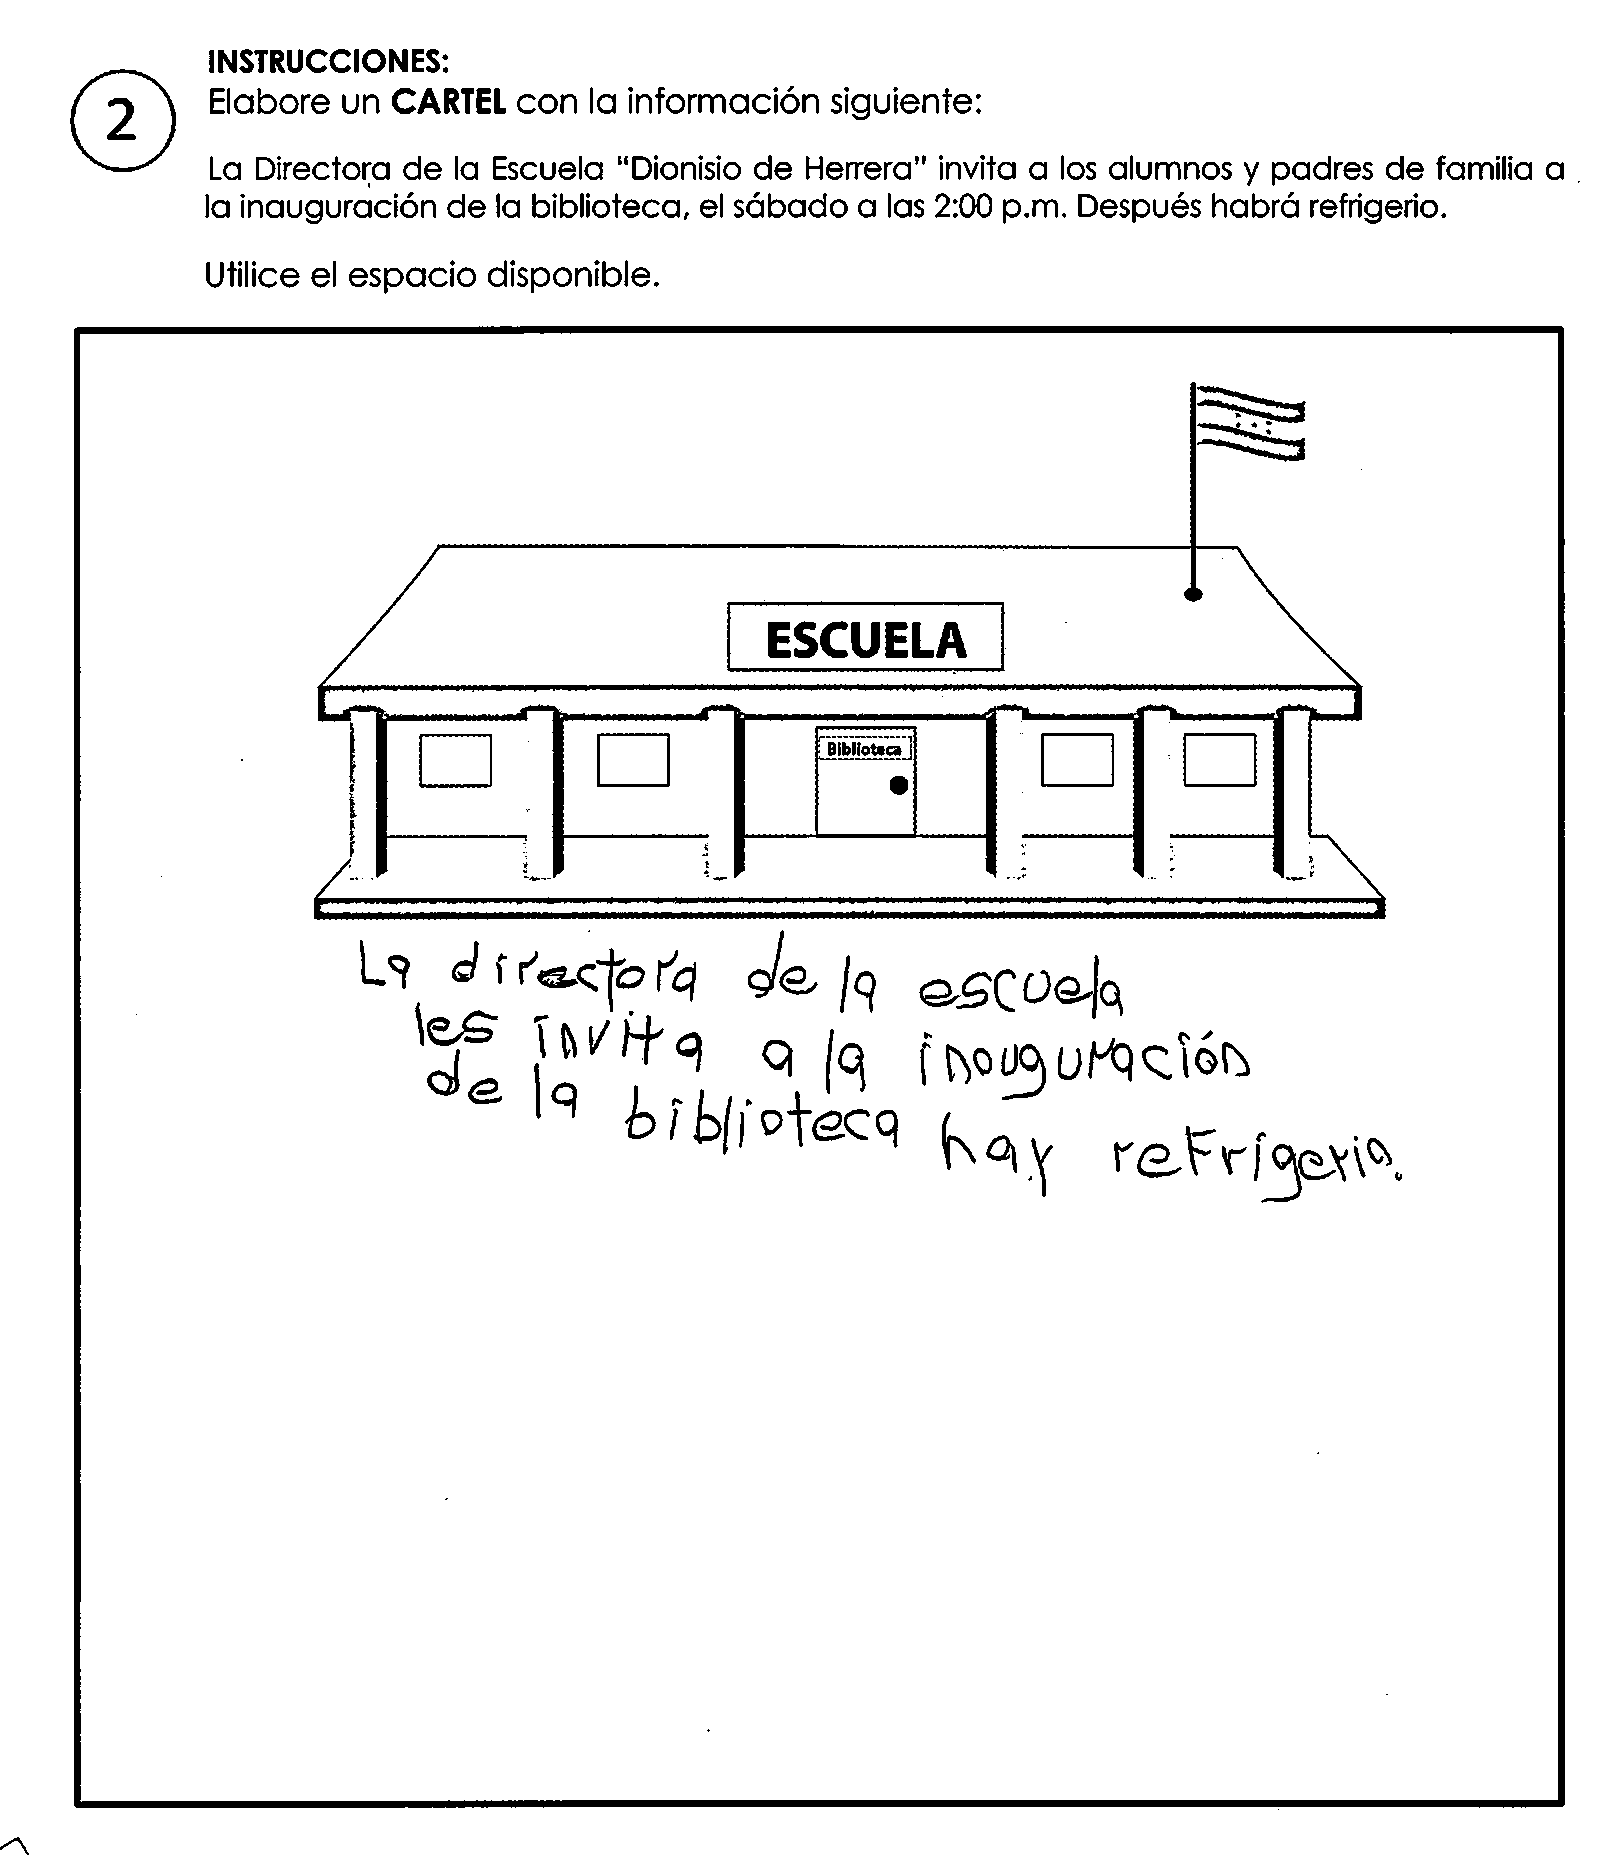 INSTRUCCIONES:
2
Elabore un CARTEL con la información siguiente:
La Directora de la Escuela "Dionisio de Herrera" invita a los alumnos y padres de familia a
la inauguración de la biblioteca, el sábado a las 2:00 p.m. Después habrá refrigerio.
Utilice el espacio disponible.
ESCUELA
Biblioteca
La directora de la escuela
les invita a la inouguración
de la biblioteca hay refrigerio.